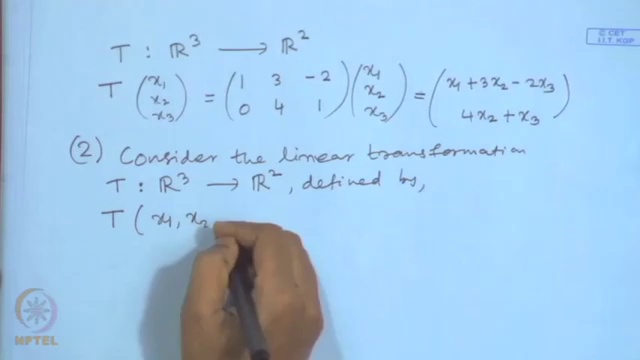 © CET
I.I.T. KGP
T : ℝ³ ⟶ ℝ²
T (x₁ x₂ x₃) = (1 3 -2 0 4 1) (x₁ x₂ x₃) = (x₁ + 3x₂ - 2x₃ 4x₂ + x₃)
(2) Consider the linear transformation
T : ℝ³ ⟶ ℝ², defined by,
T ( x₁, x₂
NPTEL